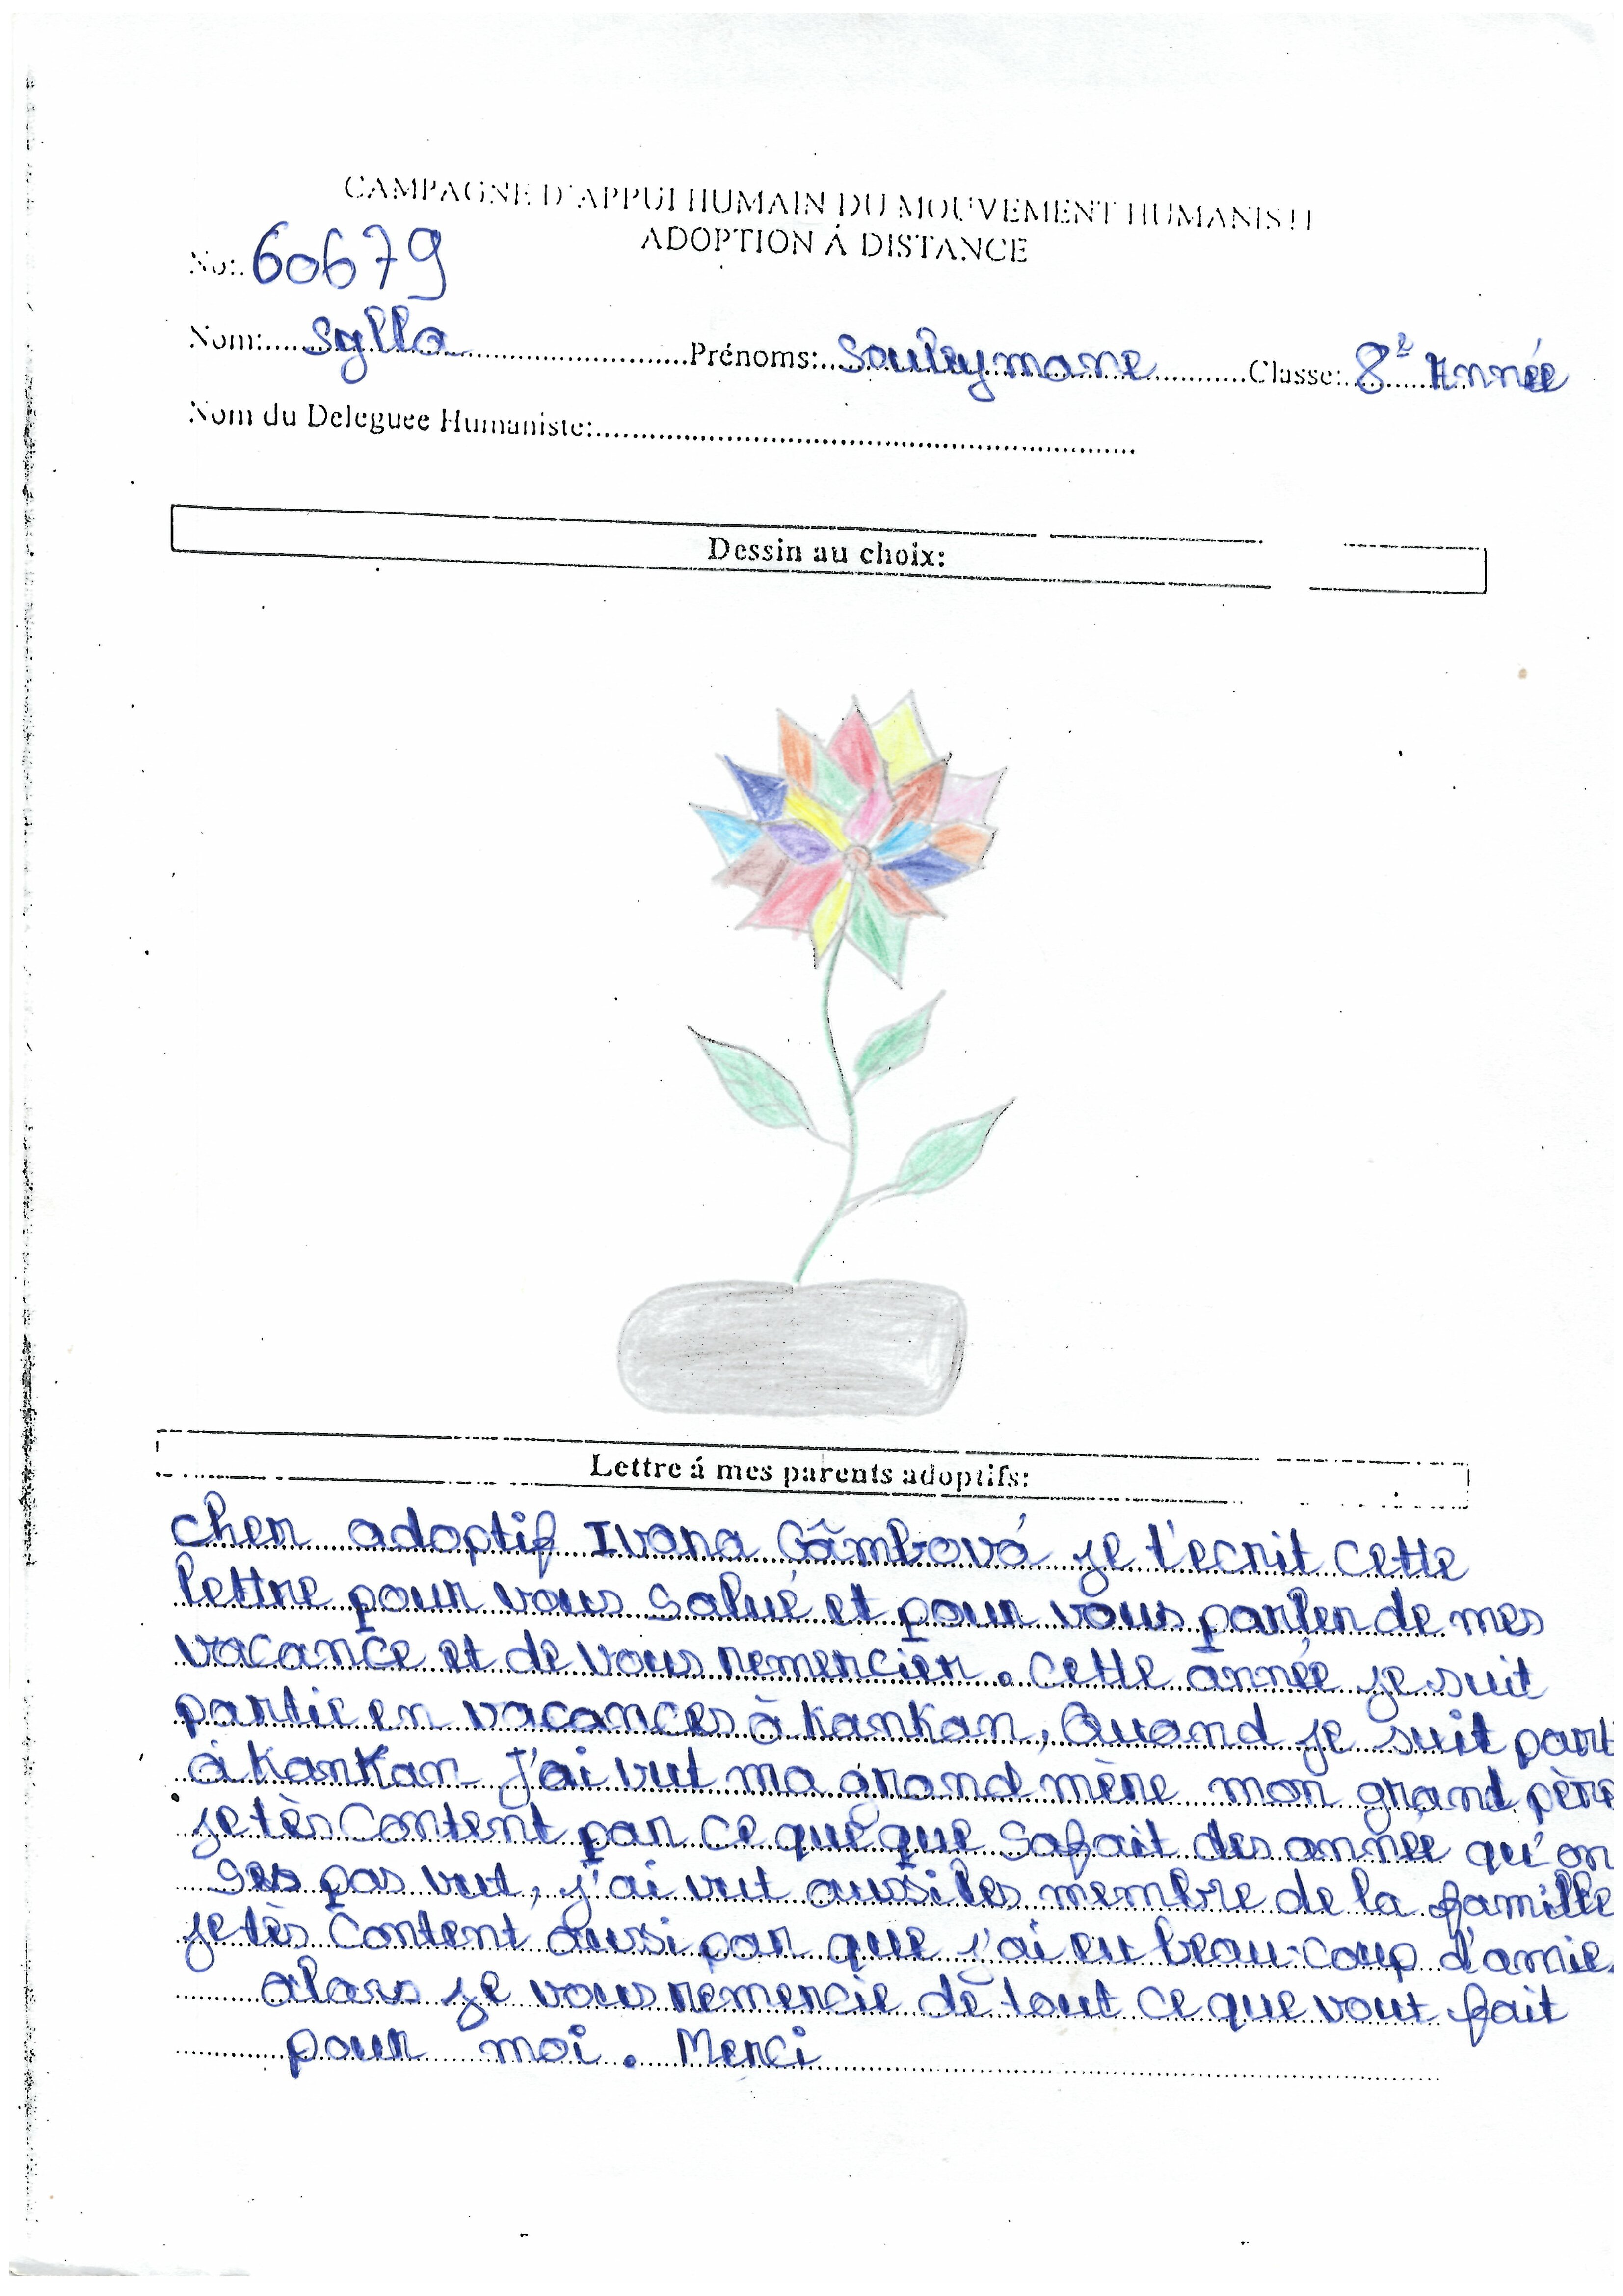 CAMPAGNE D'APPUI HUMAIN DU MOUVEMENT HUMANISTE
ADOPTION Á DISTANCE
No: 60679
Nom: Sylla Prénoms: Souleymane Classse: 8è Année
Nom du Deleguee Humaniste:
Dessin au choix:
Lettre á mes parents adoptifs:
cher adoptif Ivana Gâmbová je t'ecrit cette
lettre pour vous salué et pour vous parler de mes
vacance et de vous remercier. cette année je suit
partie en vacances à Kankan, Quand je suit part
à KanKan J'ai vut ma grand mère mon grand père
je tès Content par ce que que safait des année qu'on
pas vut, j'ai vut aussi les membre de la famille
je tès Content aussi par que j'ai eu beau-coup d'amie.
alars je vous remercie de tout ce que vout fait
pour moi. Merci